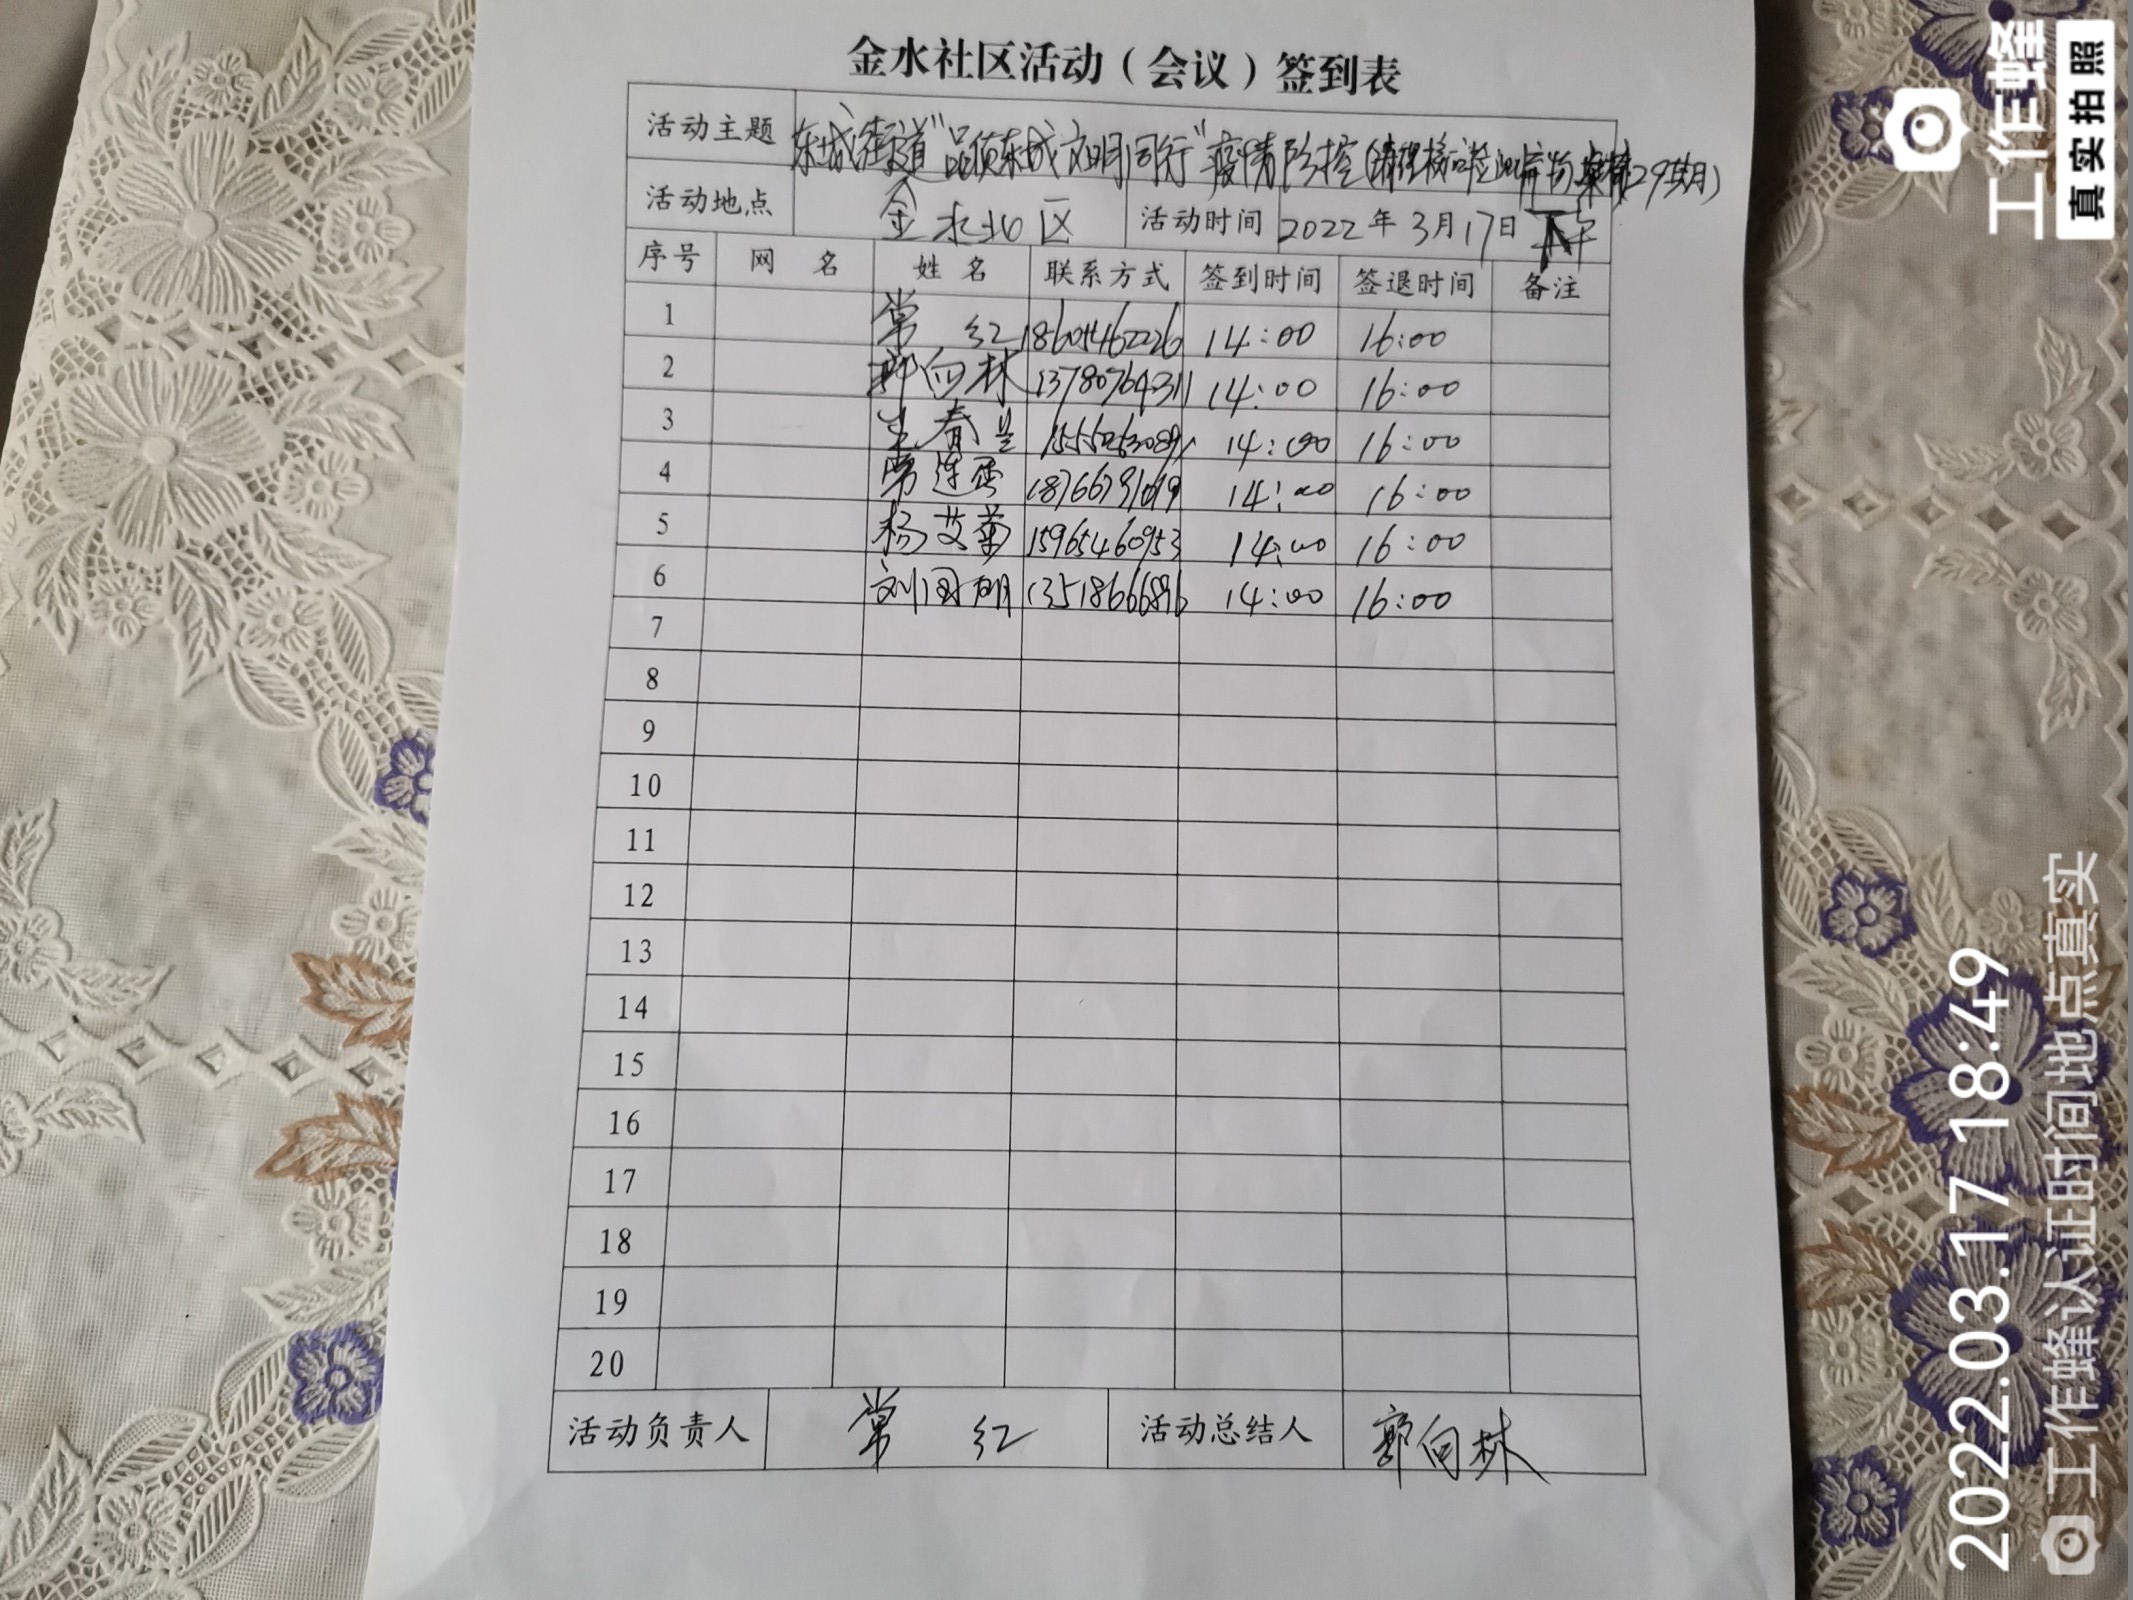 金水社区活动（会议）签到表
活动主题 东城街道"品质东城 文明同行"疫情防控(清理 29期)
活动地点 金水北区 活动时间 2022年3月17日 下午
序号 网 名 姓 名 联系方式 签到时间 签退时间 备注
1 常 红 18604462226 14:00 16:00
2 郭向林 13780764311 14:00 16:00
3 春 14:00 16:00
4 常连 14:00 16:00
5 杨艾菊 15965460953 14:00 16:00
6 刘国 13518666896 14:00 16:00
7
8
9
10
11
12
13
14
15
16
17
18
19
20
活动负责人 常 红 活动总结人 郭向林
工作蜂
真实拍照
2022.03.17 18:49
工作蜂认证时间地点真实